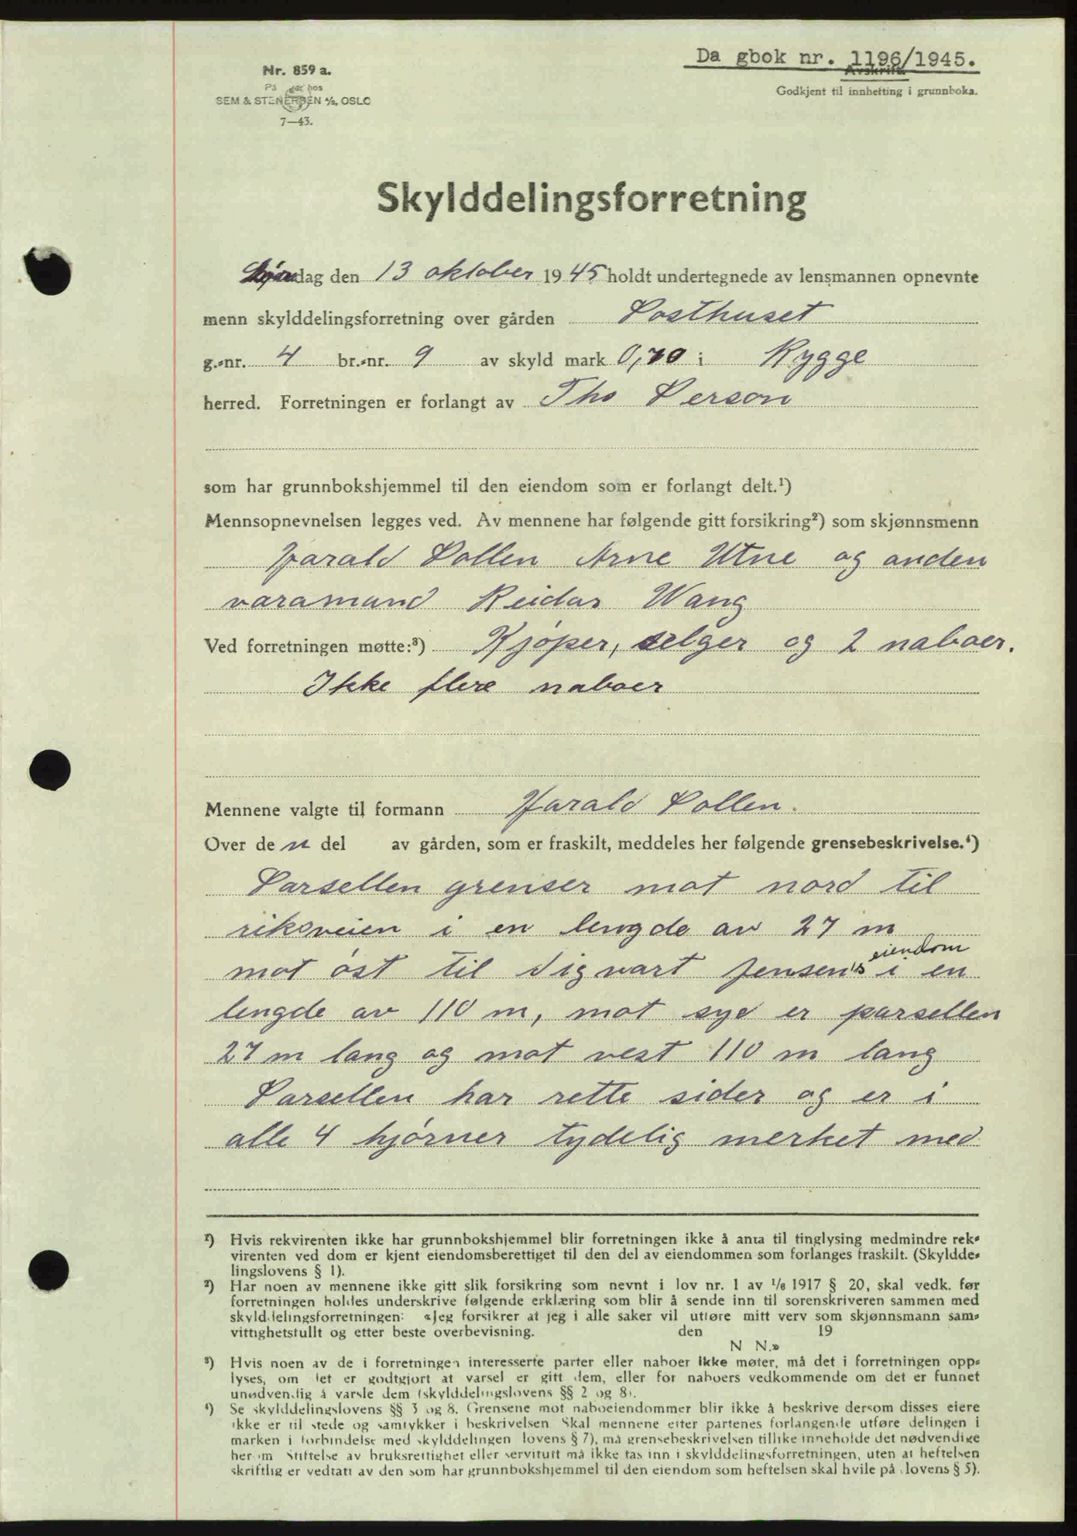 Da gbok nr. 1196/1945.
Avskrift
Godkjent til innhefting i grunnboka.
Nr. 859 a.
På hos
SEM & STENERSEN A/S, OSLO
7—43.
Skylddelingsforretning
Lørdag den 13 oktober 1945 holdt undertegnede av lensmannen opnevnte
menn skylddelingsforretning over gården Posthuset
g.-nr. 4 br.-nr. 9 av skyld mark 0,70 i Rygge
herred. Forretningen er forlangt av Tho Person
som har grunnbokshjemmel til den eiendom som er forlangt delt.¹)
Mennsopnevnelsen legges ved. Av mennene har følgende gitt forsikring²) som skjønnsmenn
Harald Sollen Arne Utne og anden
varamand Reidar Wang
Ved forretningen møtte:³) Kjøper, selger og 2 naboer.
Ikke flere naboer
Mennene valgte til formann Harald Sollen.
Over de n del av gården, som er fraskilt, meddeles her følgende grensebeskrivelse.⁴)
Parsellen grenser mot nord til
riksveien i en lengde av 27 m
mot øst til Sigvart Jensen's eiendom i en
lengde av 110 m, mot syd er parsellen
27 m lang og mot vest 110 m lang
Parsellen har rette sider og er i
alle 4 hjørner tydelig merket med
¹) Hvis rekvirenten ikke har grunnbokshjemmel blir forretningen ikke å anta til tinglysing medmindre rek-
virenten ved dom er kjent eiendomsberettiget til den del av eiendommen som forlanges fraskilt. (Skyldde-
lingslovens § 1).
²) Har noen av mennene ikke gitt slik forsikring som nevnt i lov nr. 1 av 1/6 1917 § 20, skal vedk. før
forretningen holdes underskrive følgende erklæring som blir å sende inn til sorenskriveren sammen med
skylddelingsforretningen: «Jeg forsikrer at jeg i alle saker vil utføre mitt verv som skjønnsmann sam-
vittighetsfullt og etter beste overbevisning. den 19
N N.»
³) Hvis noen av de i forretningen interesserte parter eller naboer ikke møter, må det i forretningen opp-
lyses, om det er godtgjort at varsel er gitt dem, eller for naboers vedkommende om det er funnet
unødvendig å varsle dem (skylddelingslovens §§ 2 og 8).
⁴) Se skylddelingslovens §§ 3 og 8. Grensene mot naboeiendommer blir ikke å beskrive dersom disses eiere
ikke er til stede og samtykker i beskrivelsen Skal mennene etter partenes forlangende utføre delingen i
marken i forbindelse med skylddelingen lovens § 7), må grensebeskrivelsen tillike inneholde det nødvendige
her om Stiftelse av bruksrettighet eller servitutt må ikke tas inn i skylddelingsforretningen, uten at heftelsen
skriftlig er vedtatt av den som har grunnbokshjemmel til den eiendom som heftelsen skal hvile på lovens § 5).